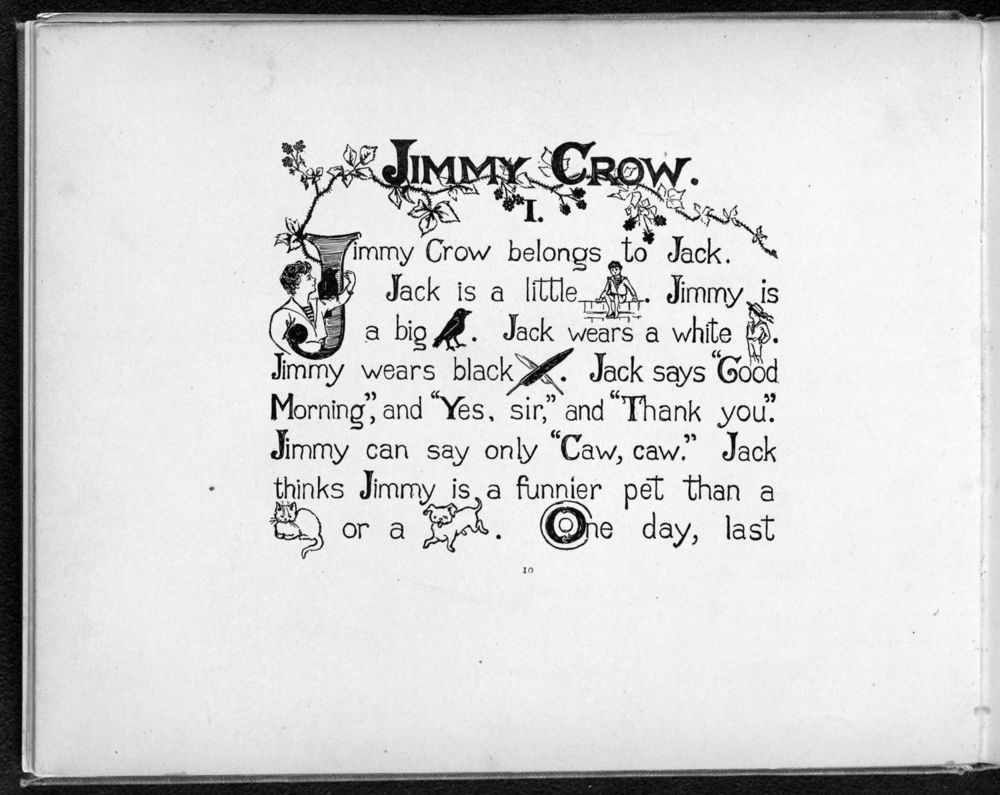 JIMMY CROW.
I.
Jimmy Crow belongs to Jack.
Jack is a little . Jimmy is
a big . Jack wears a white .
Jimmy wears black . Jack says "Good
Morning", and "Yes, sir," and "Thank you".
Jimmy can say only "Caw, caw." Jack
thinks Jimmy is a funnier pet than a
or a . One day, last
10